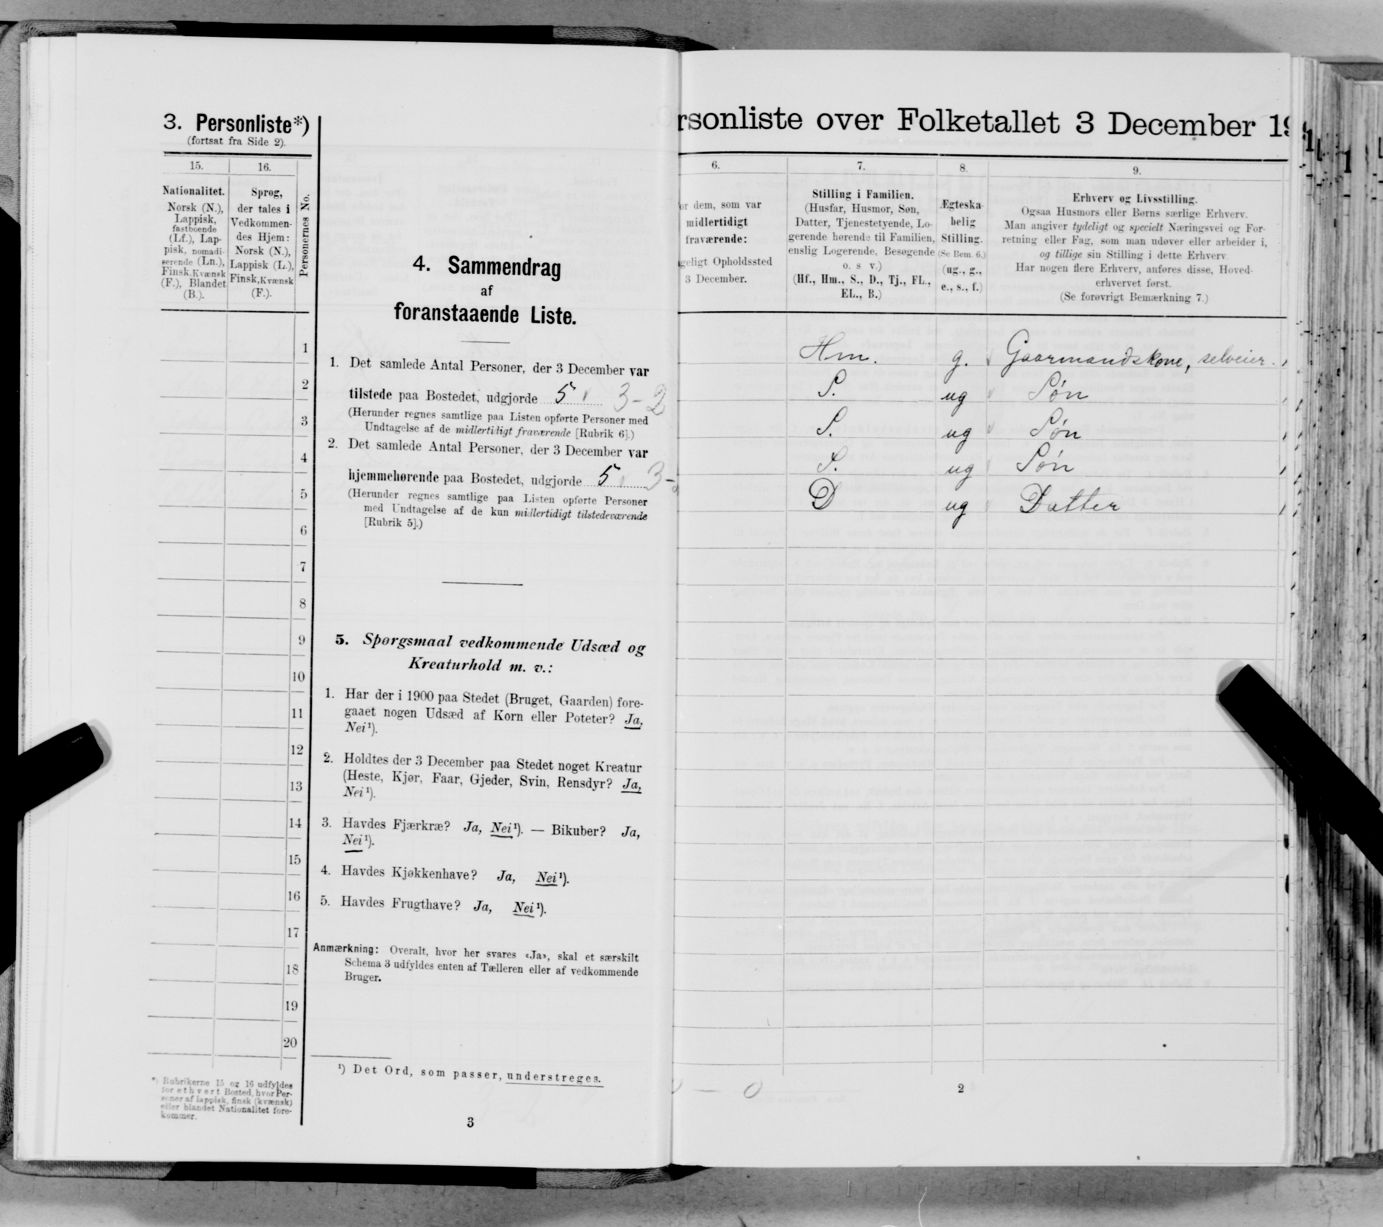 3. Personliste*)
(fortsat fra Side 2).
15.
16.
Nationalitet.
Norsk (N.),
Lappisk,
fastboende
(Lf.), Lap-
pisk, nomadi-
serende (Ln.),
Finsk, Kvænsk
(F.), Blandet
(B.).
Sprog,
der tales i
Vedkommen-
des Hjem:
Norsk (N.),
Lappisk (L.),
Finsk, Kvænsk
(F.).
Personernes No.
1
2
3
4
5
6
7
8
9
10
11
12
13
14
15
16
17
18
19
20
*) Rubrikerne 15 og 16 udfyldes
for ethvert Bosted, hvor Per-
soner af lappisk, finsk (kvænsk)
eller blandet Nationalitet fore-
kommer.
4. Sammendrag
af
foranstaaende Liste.
1. Det samlede Antal Personer, der 3 December var
tilstede paa Bostedet, udgjorde 5 3-2
(Herunder regnes samtlige paa Listen opførte Personer med
Undtagelse af de midlertidigt fraværende [Rubrik 6].)
2. Det samlede Antal Personer, der 3 December var
hjemmehørende paa Bostedet, udgjorde 5 3-
(Herunder regnes samtlige paa Listen opførte Personer
med Undtagelse af de kun midlertidigt tilstedeværende
[Rubrik 5].)
5. Spørgsmaal vedkommende Udsæd og
Kreaturhold m. v.:
1. Har der i 1900 paa Stedet (Bruget, Gaarden) fore-
gaaet nogen Udsæd af Korn eller Poteter? Ja,
Nei¹).
2. Holdtes der 3 December paa Stedet noget Kreatur
(Heste, Kjør, Faar, Gjeder, Svin, Rensdyr? Ja,
Nei¹).
3. Havdes Fjærkræ? Ja, Nei¹). — Bikuber? Ja,
Nei¹).
4. Havdes Kjøkkenhave? Ja, Nei¹).
5. Havdes Frugthave? Ja, Nei¹).
Anmærkning: Overalt, hvor her svares «Ja», skal et særskilt
Schema 3 udfyldes enten af Tælleren eller af vedkommende
Bruger.
¹) Det Ord, som passer, understreges.
3
rsonliste over Folketallet 3 December 19
6.
7.
8.
9.
or dem, som var
midlertidigt
fraværende:
geligt Opholdssted
3 December.
Stilling i Familien.
(Husfar, Husmor, Søn,
Datter, Tjenestetyende, Lo-
gerende hørende til Familien,
enslig Logerende, Besøgende
o. s v.)
(Hf., Hm., S., D., Tj., FL.,
EL., B.)
Ægteska-
belig
Stilling.
(Se Bem. 6.)
(ug., g.,
e., s., f.)
Erhverv og Livsstilling.
Ogsaa Husmors eller Børns særlige Erhverv.
Man angiver tydeligt og specielt Næringsvei og For-
retning eller Fag, som man udøver eller arbeider i,
og tillige sin Stilling i dette Erhverv
Har nogen flere Erhverv, anføres disse, Hoved-
erhvervet først.
(Se forøvrigt Bemærkning 7.)
Hm. g. Gaarmandskone, selveier.
S. ug Søn
S. ug Søn
S. ug Søn
D ug Datter
0 - 0
2